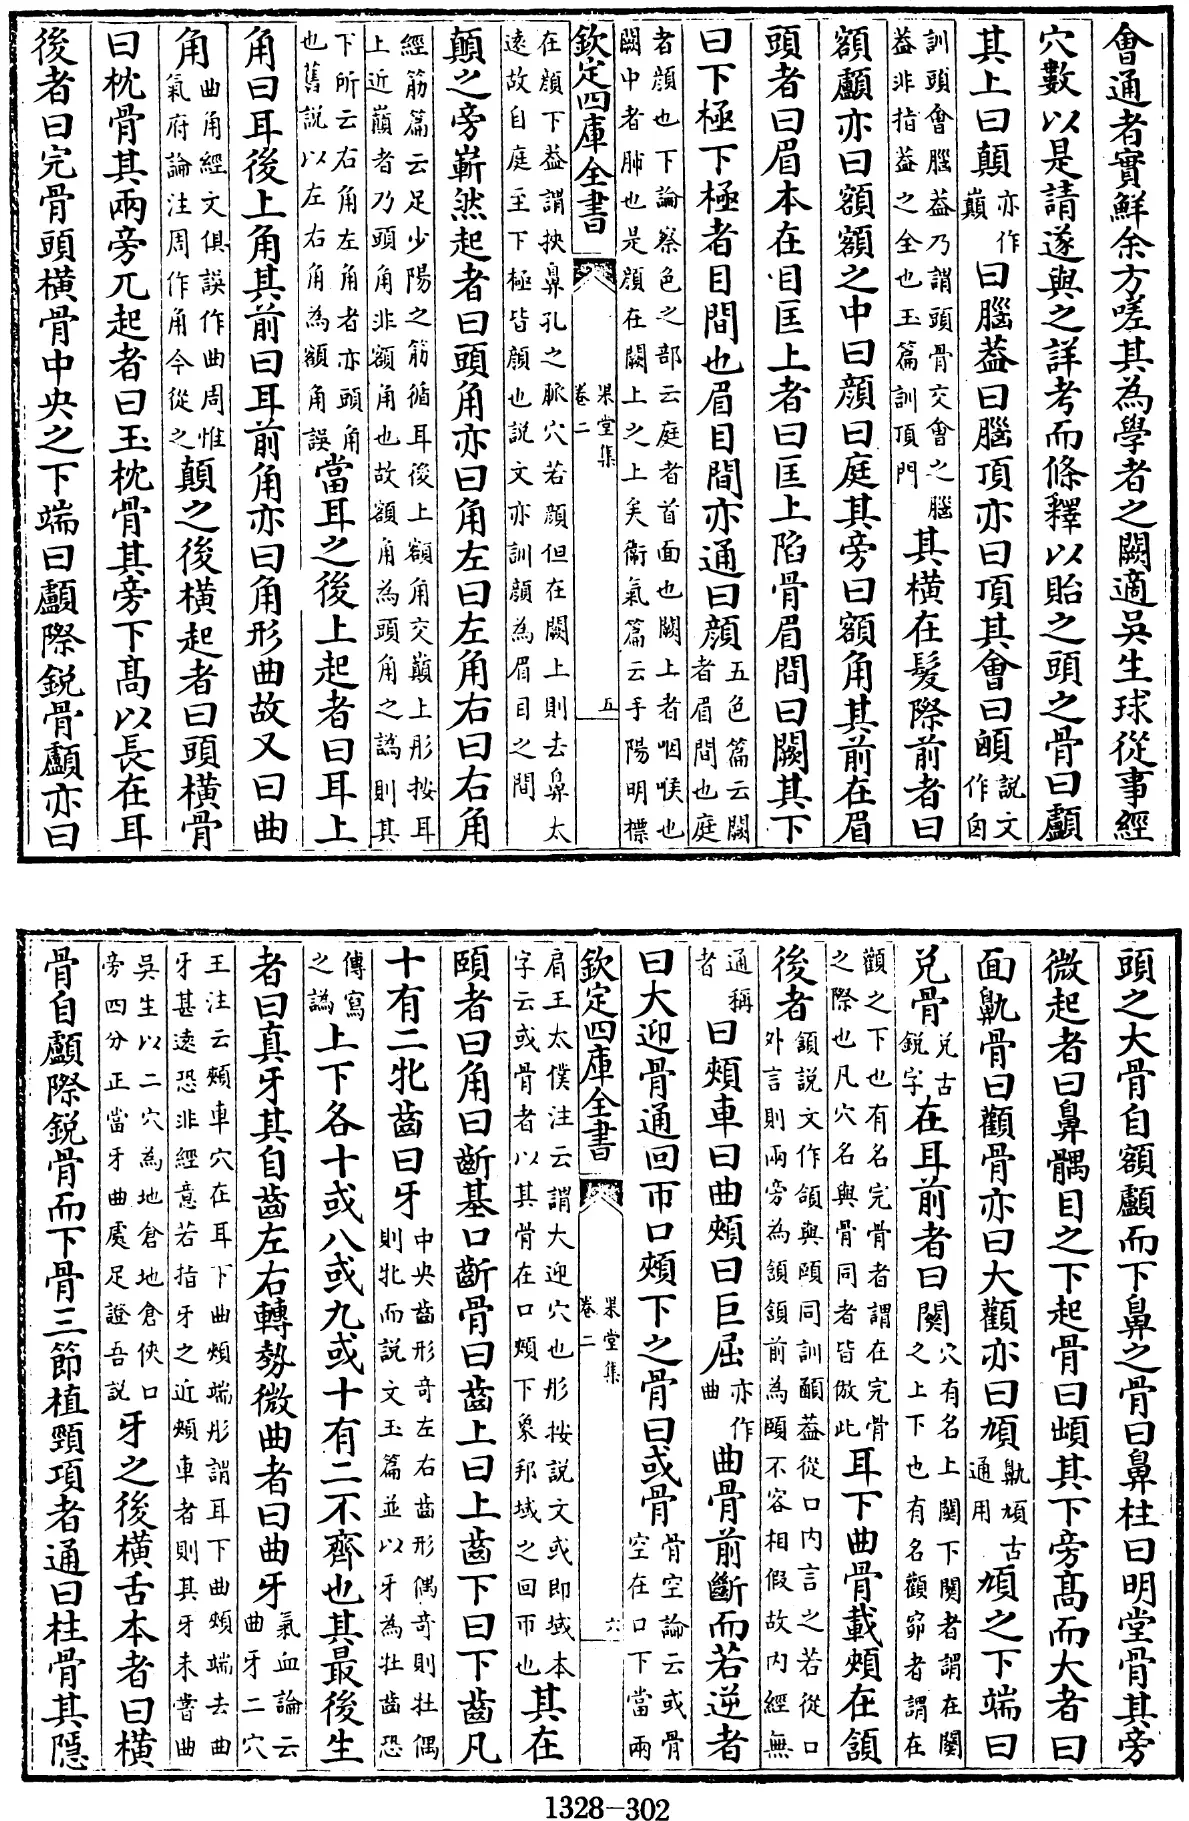 會通者實鮮余方嗟其為學者之闕適吳生球從事經
穴數以是請遂與之詳考而條釋以貽之頭之骨曰顱
其上曰顛亦作巔曰腦葢曰腦頂亦曰頂其會曰𩕄說文作囟
訓頭會腦葢乃謂頭骨交會之腦葢非指葢之全也玉篇訓頂門其橫在髮際前者曰
額顱亦曰額額之中曰顔曰庭其旁曰額角其前在眉
頭者曰眉本在目匡上者曰匡上陷骨眉間曰闕其下
曰下極下極者目間也眉目間亦通曰顔五色篇云闕者眉間也庭
者顔也下論察色之部云庭者首面也闕上者咽喉也闕中者肺也是顔在闕上之上矣衞氣篇云手陽明標
欽定四庫全書 果堂集 卷二 五
在顔下葢謂挾鼻孔之脈穴若顔但在闕上則去鼻太逺故自庭至下極皆顔也說文亦訓顔為眉目之間
顛之旁嶄然起者曰頭角亦曰角左曰左角右曰右角
經筋篇云足少陽之筋循耳後上額角交巔上彤按耳上近巔者乃頭角非額角也故額角為頭角之譌則其
下所云右角左角者亦頭角也舊說以左右角為額角誤當耳之後上起者曰耳上
角曰耳後上角其前曰耳前角亦曰角形曲故又曰曲
角曲角經文俱誤作曲周惟氣府論注周作角今從之顛之後橫起者曰頭橫骨
曰枕骨其兩旁兀起者曰玉枕骨其旁下髙以長在耳
後者曰完骨頭橫骨中央之下端曰顱際銳骨顱亦曰
頭之大骨自額顱而下鼻之骨曰鼻柱曰明堂骨其旁
微起者曰鼻髃目之下起骨曰䪼其下旁髙而大者曰
面鼽骨曰顴骨亦曰大顴亦曰頄鼽頄古通用頄之下端曰
兑骨兑古鋭字在耳前者曰關穴有名上關下關者謂在關之上下也有名顴窌者謂在
顴之下也有名完骨者謂在完骨之際也凡穴名與骨同者皆倣此耳下曲骨載頰在頷
後者頷說文作頜與頤同訓顄葢從口内言之若從口外言則兩旁為頷頷前為頤不容相假故内經無
通稱者曰頰車曰曲頰曰巨屈亦作曲曲骨前斷而若逆者
曰大迎骨通回帀口頰下之骨曰或骨骨空論云或骨空在口下當兩
欽定四庫全書 果堂集 卷二 六
肩王太僕注云謂大迎穴也彤按說文或即域本字云或骨者以其骨在口頰下象邦域之回帀也其在
頤者曰角曰齗基口齗骨曰齒上曰上齒下曰下齒凡
十有二牝齒曰牙中央齒形奇左右齒形偶奇則牡偶則牝而說文玉篇並以牙為牡齒恐
傳寫之譌上下各十或八或九或十有二不齊也其最後生
者曰真牙其自齒左右轉勢微曲者曰曲牙氣血論云曲牙二穴
王注云頰車穴在耳下曲頰端彤謂耳下曲頰端去曲牙甚逺恐非經意若指牙之近頰車者則其牙未嘗曲
吳生以二穴為地倉地倉俠口旁四分正當牙曲處足證吾說牙之後橫舌本者曰橫
骨自顱際銳骨而下骨三節植頸項者通曰柱骨其隱
1328-302